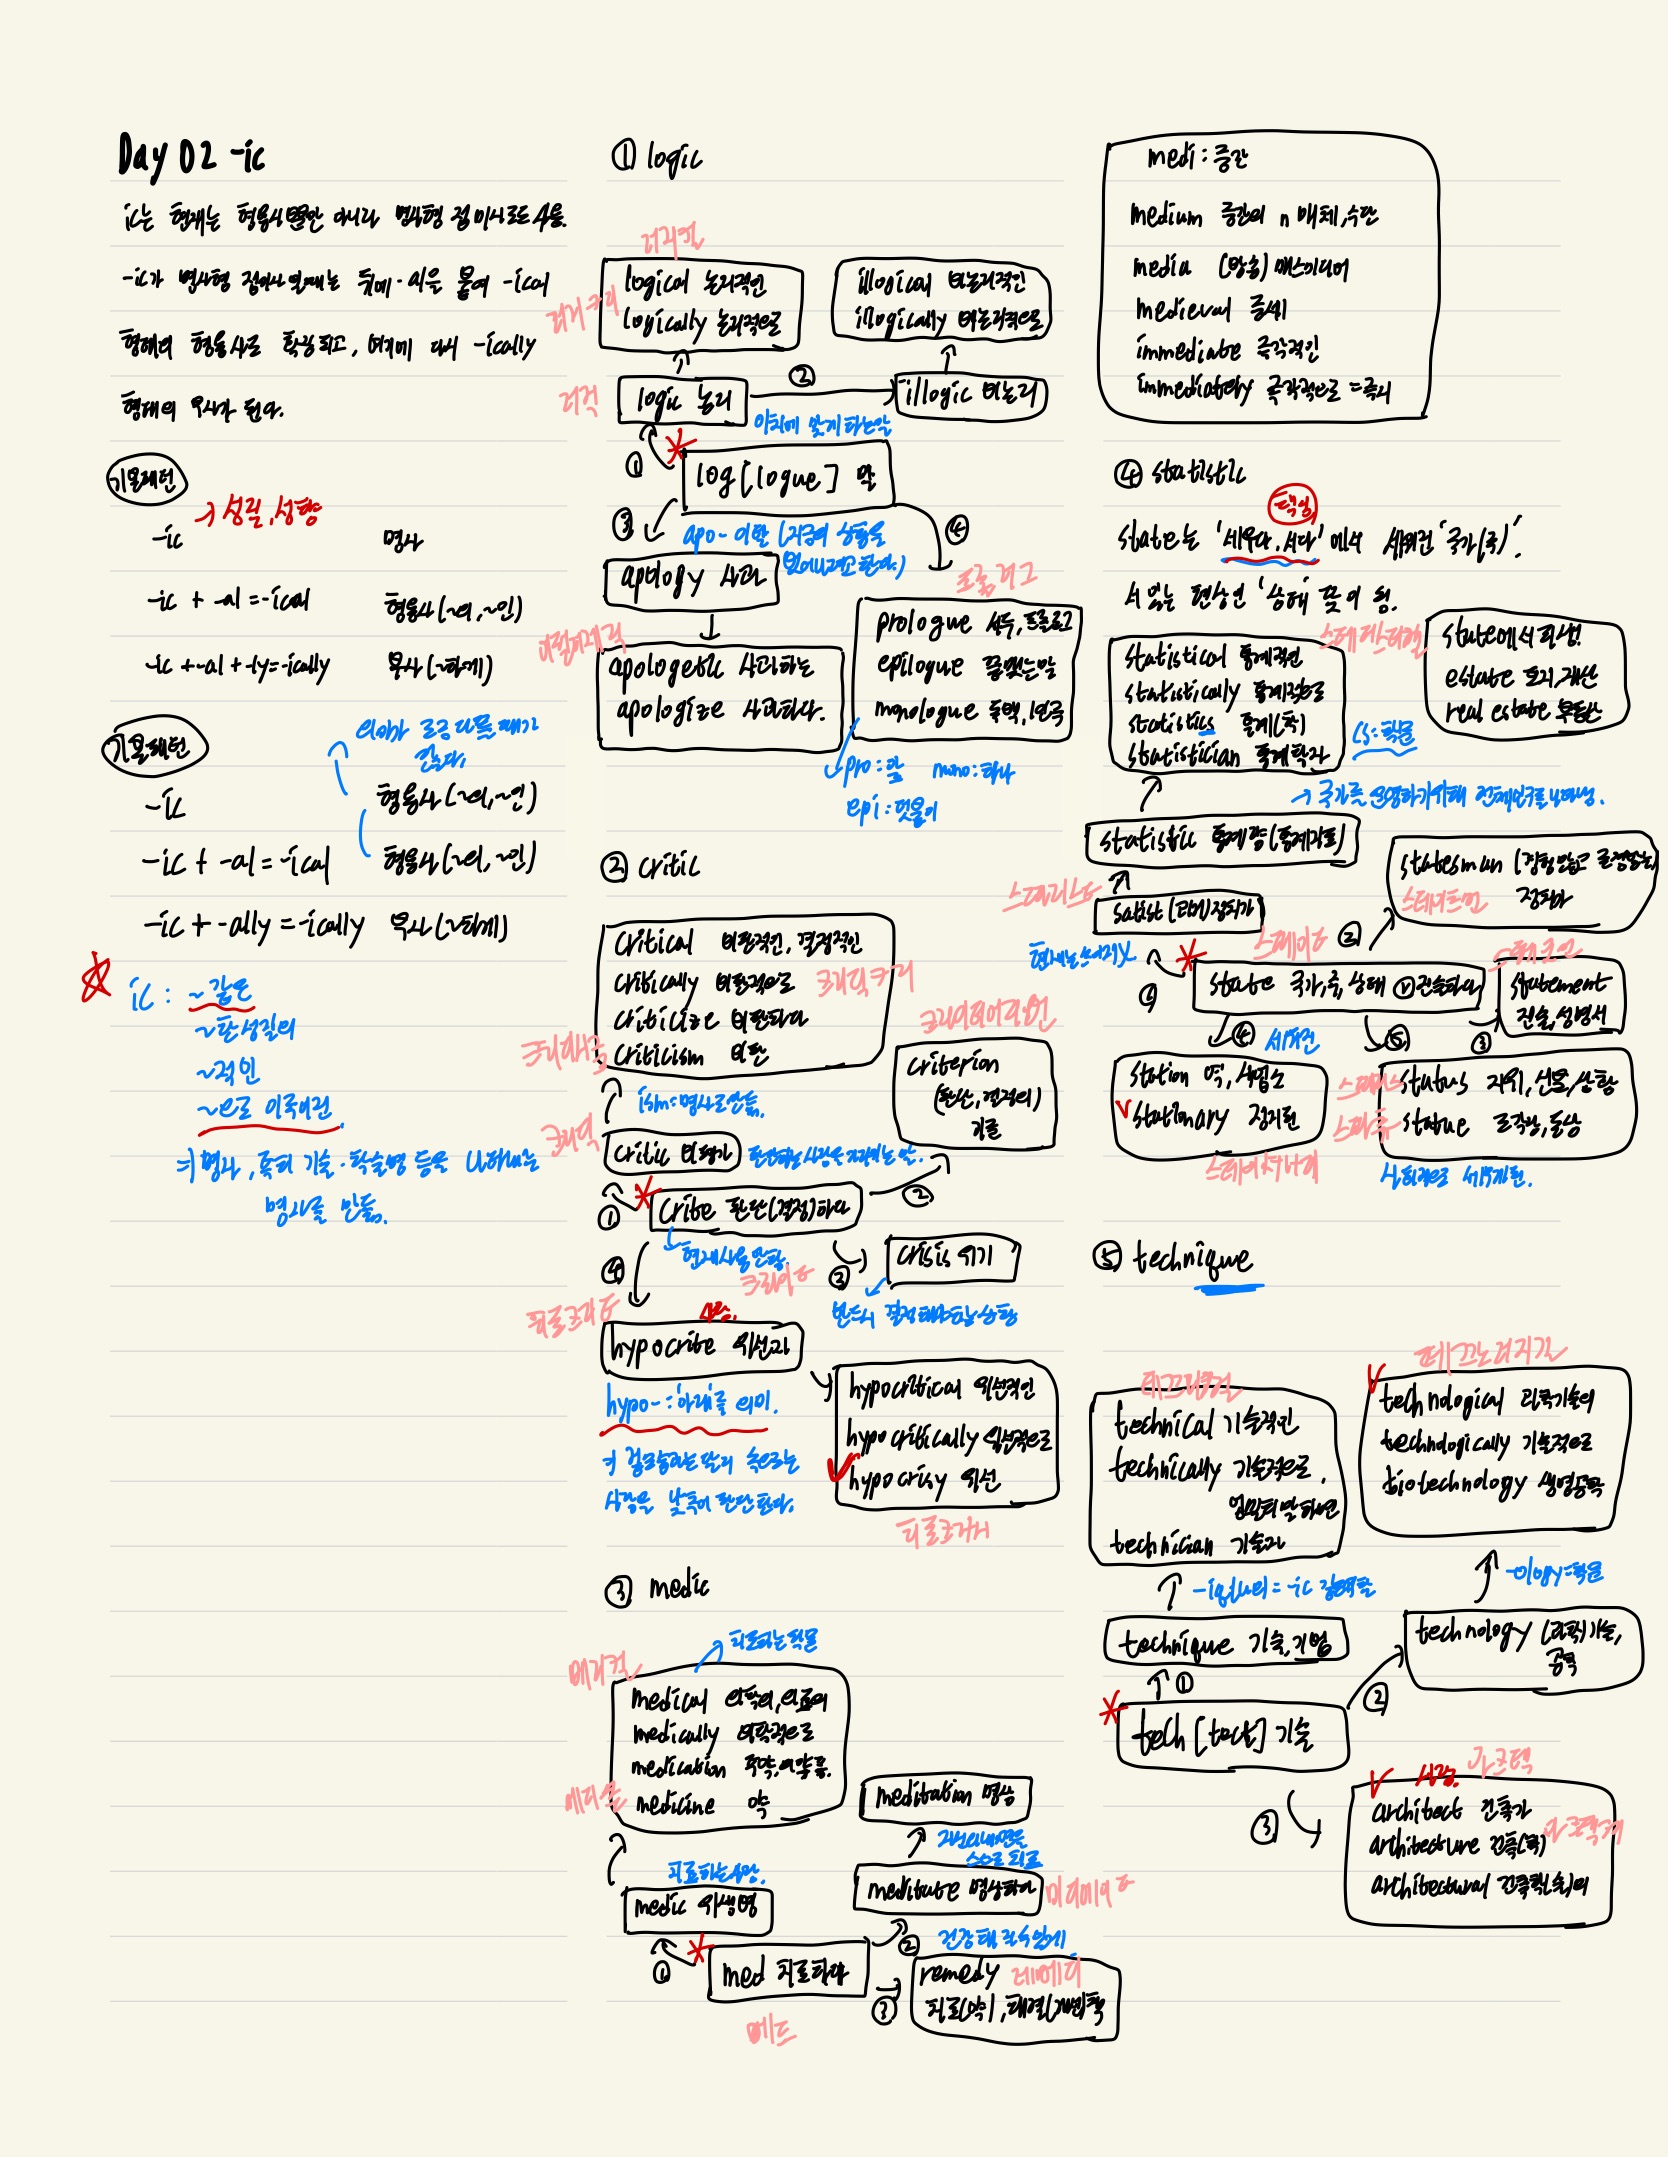 Day 02 -ic
ic는 현재는 형용사뿐만 아니라 명사형 접미사로도 쓰임.
-ic가 명사형 접미사 일때는 뒤에 -al을 붙여 -ical
형태의 형용사로 확장되고, 여기에 다시 -ically
형태의 부사가 된다.
기본패턴
→ 성질, 성향
-ic 명사
-ic + -al = -ical 형용사(~의, ~인)
-ic + -al + -ly = -ically 부사(~하게)
기본패턴
의미가 조금 다를 때가
있다.
-ic 형용사(~의, ~인)
-ic + -al = -ical 형용사(~의, ~인)
-ic + -ally = -ically 부사(~하게)
ic : ~같은
~한 성질의
~적인
~으로 이루어진
⇒ 명사, 특히 기술·학술명 등을 나타내는
명사를 만듦.
① logic
러지컬
logical 논리적인
logically 논리적으로
illogical 비논리적인
illogically 비논리적으로
러직
logic 논리
②
illogic 비논리
이치에 맞게 하는 말
①
log[logue] 말
③
④
apo- 이탈 (지금의 상황을
벗어나려고 한다.)
apology 사과
프롤러그
어펄러제틱
apologetic 사과하는
apologize 사과하다.
prologue 서두, 프롤로그
epilogue 끝맺는말
monologue 독백, 1인극
pro : 앞 mono : 하나
epi : 덧붙이
② critic
critical 비판적인, 결정적인
critically 비판적으로
criticize 비판하다
criticism 비판
크리티클리
크리티시즘
크라이티어리언
criterion
(판단, 결정의)
기준
ism : 명사로 만듦.
크리틱
critic 비평가
판단하는 사람을 지칭하는 말.
①
crite 판단(결정)하다
②
현재 사용 안함.
크라이트
④
③
crisis 위기
반드시 결정해야하는 상황
히포크리트
hypocrite 위선자
hypo- : '아래'를 의미.
⇒ 겉모습과는 달리 속으로는
상대를 낮추어 판단한다.
hypocritical 위선적인
hypocritically 위선적으로
hypocrisy 위선
히포크러시
③ medic
치료하는 학문
메디컬
medical 의학의, 의료의
medically 의학적으로
medication 투약, 의약품.
medicine 약
메디슨
meditation 명상
자신의 내면을
스스로 치료
치료하는 사람.
medic 위생병
meditate 명상하다
메디테이트
①
med 치료하다
②
건강해질 수 있게
③
remedy 레메디
치료(약), 해결(개선)책
메드
medi : 중간
medium 중간의 n 매체, 수단
media (방송) 매스미디어
medieval 중세
immediate 즉각적인
immediately 즉각적으로 = 즉시
④ statistic
핵심
state는 '세우다, 서다'에서 세워진 '국가(주)'.
서 있는 현상인 '상태' 뜻이 됨.
스테티스티컬
statistical 통계적인
statistically 통계적으로
statistics 통계(학)
statistician 통계학자
state에서 파생!
estate 토지, 재산
real estate 부동산
cs : 학문
→ 국가를 운영하기위해 전체인구를 나타냄.
statistic 통계량(통계자료)
스테티스트
satist (고어) 정치가
현재는 쓰이지 X
statesman (경험 많고 존경받는)
스테이츠먼 정치가
스테이트
②
①
state 국가, 주, 상태 ⓥ 진술하다
statement
진술, 성명서
④
세워진
⑤
③
station 역, 사업소
stationary 정지된
스테이셔너리
스테이터스
status 지위, 신분, 상황
statue 조각상, 동상
사회적으로 세워지된.
⑤ technique
테크니컬
technical 기술적인
technically 기술적으로,
엄밀히 말하면
technician 기술자
테크놀러지컬
technological 과학기술의
technologically 기술적으로
biotechnology 생명공학
-ique = -ic 강형
-ology = 학문
technique 기술, 기법
technology (과학)기술,
공학
①
②
tech [tect] 기술
③
아키텍
architect 건축가
architecture 건축(학)
architectural 건축학(술)의